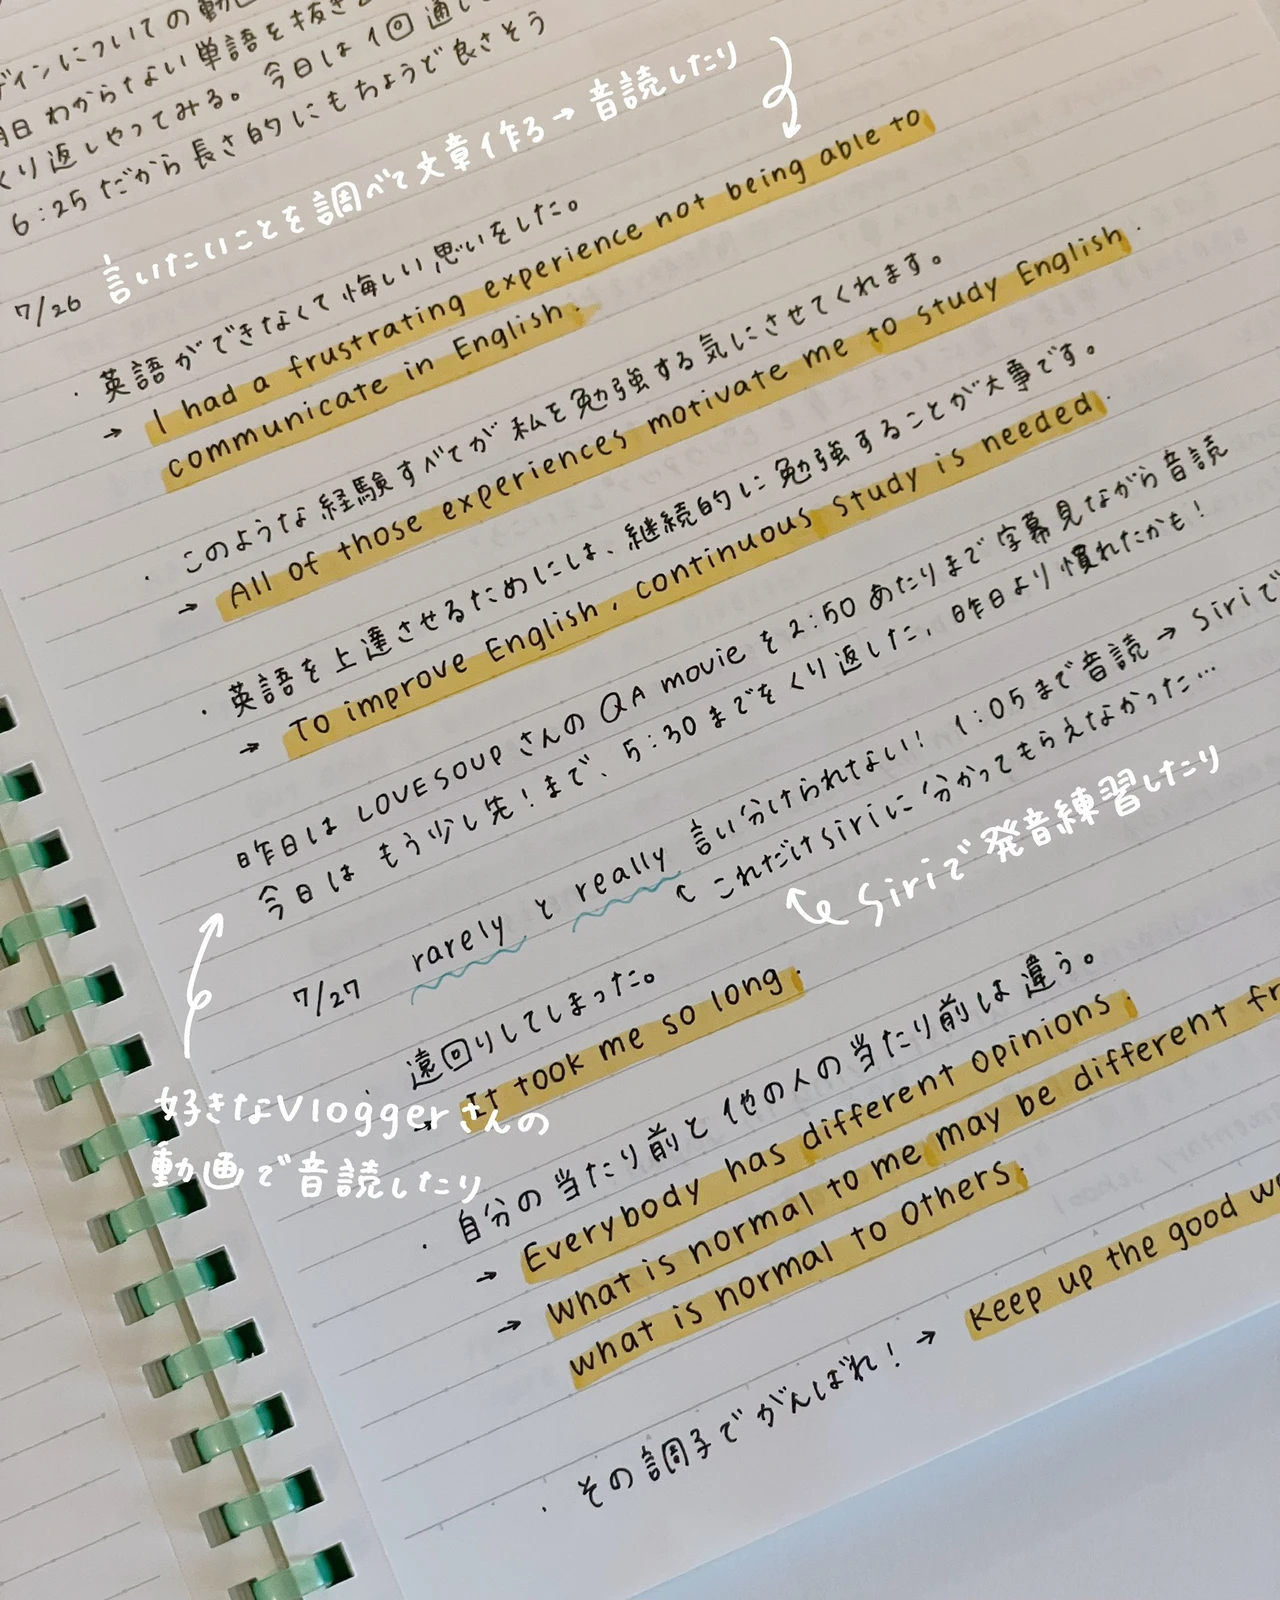 ディンについての動
明日 わからない単語を抜き
くり返しやってみる。今日は1回通し
6:25だから長さ的にもちょうど良さそう
言いたいことを調べて文章作る→音読したり
7/26
・英語ができなくて悔しい思いをした。
→ I had a frustrating experience not being able to
communicate in English.
・このような経験すべてが私を勉強する気にさせてくれます。
→ All of those experiences motivate me to study English.
・英語を上達させるためにには、継続的に勉強することが大事です。
→ To improve English, continuous study is needed.
昨日は LOVESOUP さんの QA movie を 2:50 あたりまで字幕見ながら音読
今日は もう少し先!まで、5:30までをくり返した, 昨日より慣れたかも!
rarely と really 言い分けられない! 1:05まで音読 → Siriで
↖ これだけSiriに分かってもらえなかった…
Siriで発音練習したり
7/27
・遠回りしてしまった。
→ It took me so long.
好きなVloggerさんの
動画で音読したり
・自分の当たり前と他の人の当たり前は違う。
→ Everybody has different opinions.
→ What is normal to me may be different fr
what is normal to others.
・その調子でがんばれ! → Keep up the good w